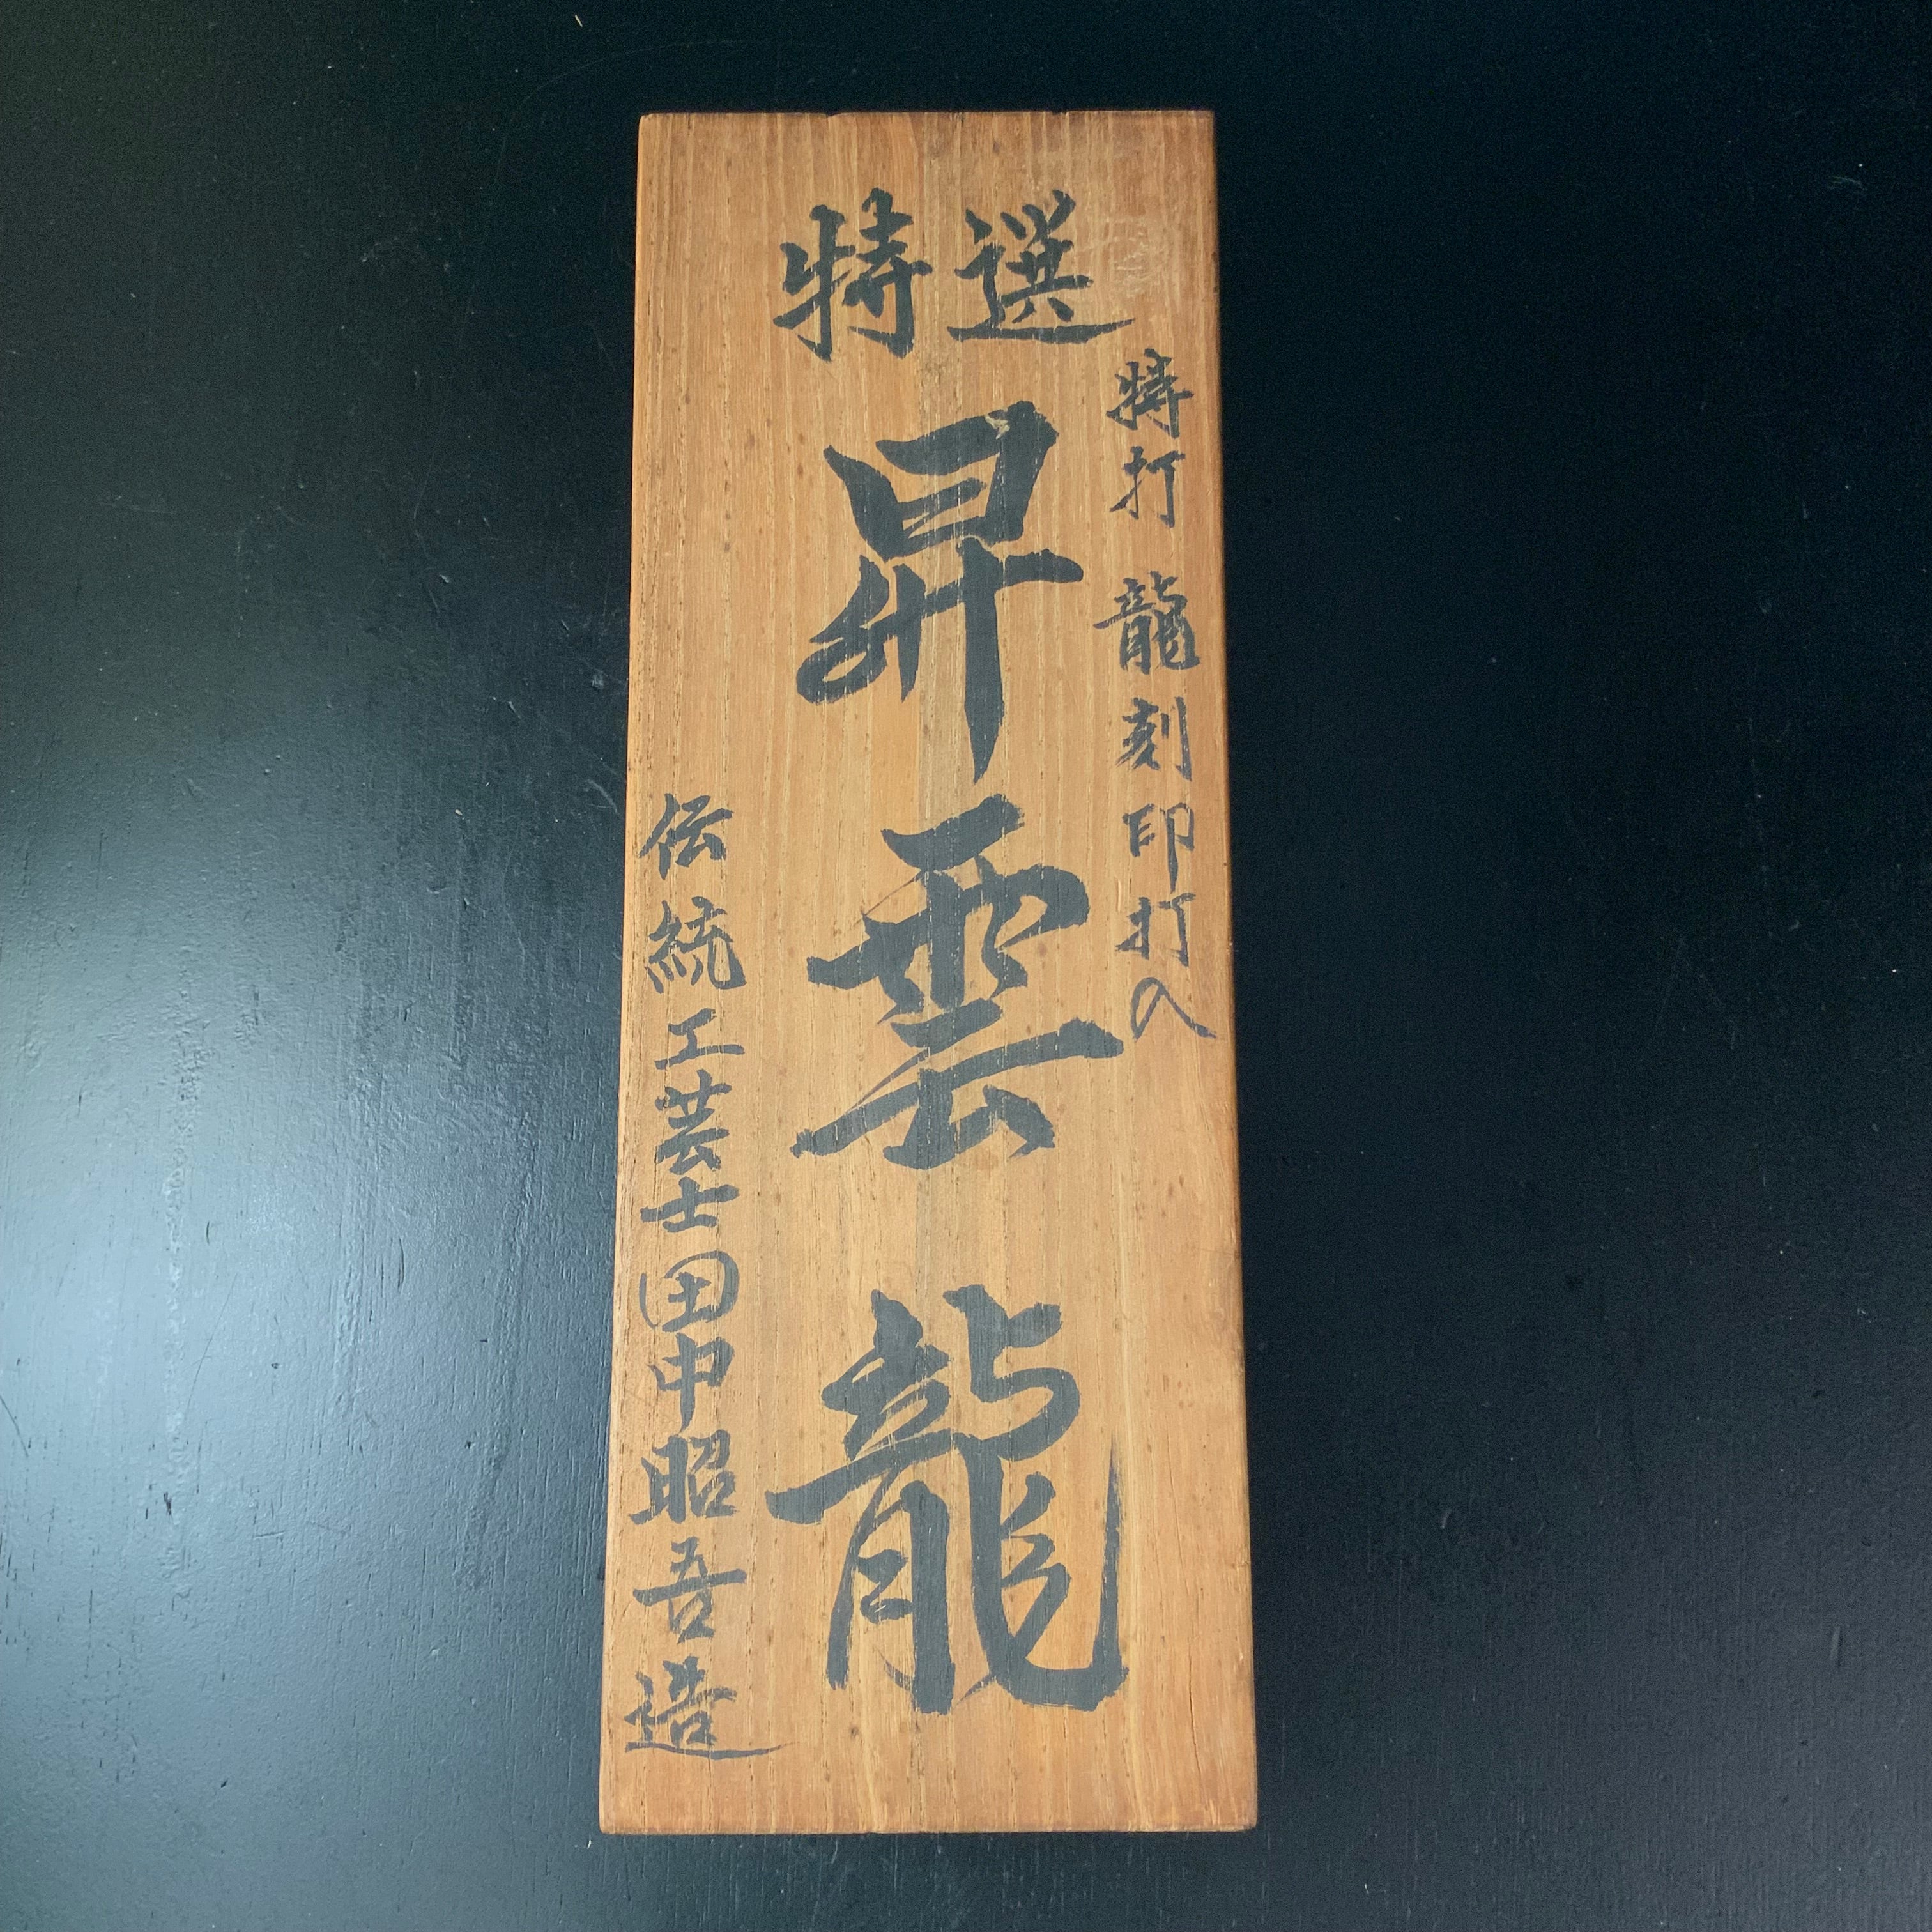 特選
特打 龍刻印打入
昇雲龍
伝統工芸士田中昭吾造